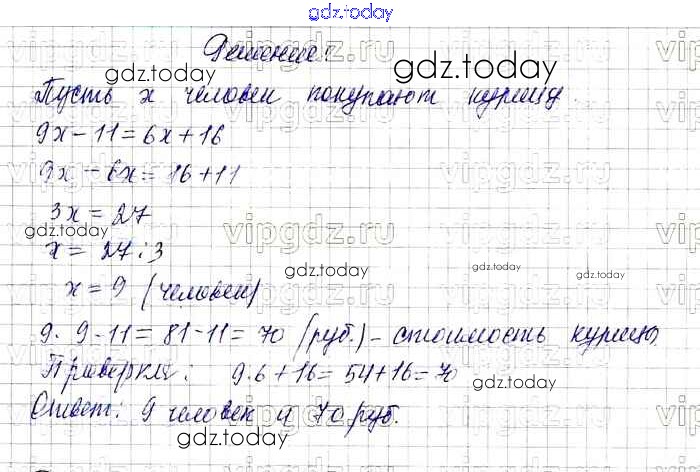 gdz.today
Решение:
gdz.today
gdz.today
Пусть x человек покупают курицу.
9x - 11 = 6x + 16
9x - 6x = 16 + 11
vipgdz.ru
3x = 27
gdz.today
vipgdz.ru
x = 27 : 3
gdz.today
x = 9 (человек)
9 · 9 - 11 = 81 - 11 = 70 (руб.) - стоимость курицы.
Проверка: 9 · 6 + 16 = 54 + 16 = 70
gdz.today
Ответ: 9 человек и 70 руб.
gdz.today